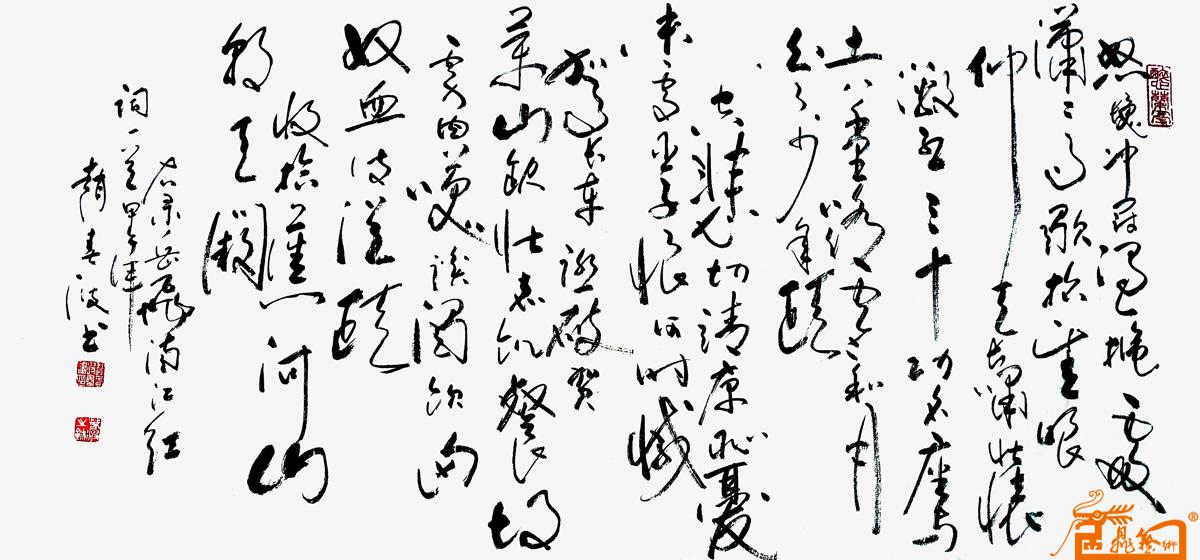 怒髮冲冠憑栏處
瀟瀟雨歇抬望眼
仰天長嘯壮懷
激烈三十功名塵与
土八千里路雲和月
白了少年頭
空悲切靖康恥
未雪臣子恨何时滅
駕长车踏破賀
蘭山缺壮志飢餐胡
虜肉笑談渴飲匈
奴血待從頭
收拾舊河山
朝天闕
右录岳飛满江红
词一首甲午年
趙春波书